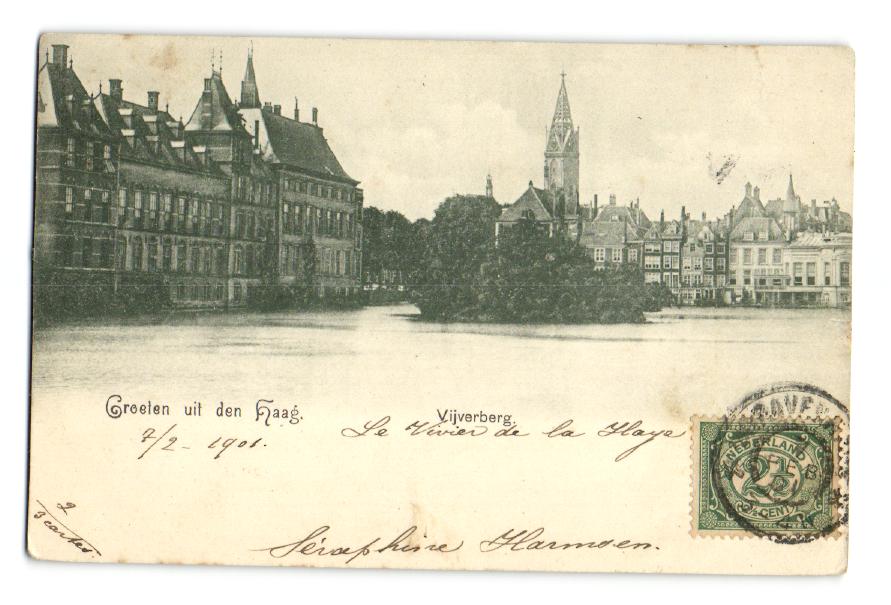 Groeten uit den Haag.
Vijverberg.
7/2 - 1901.
Le Vivier de la Haya
NEDERLAND
2½
2½ CENT
2
3 cartes.
Séraphine Harmsen.